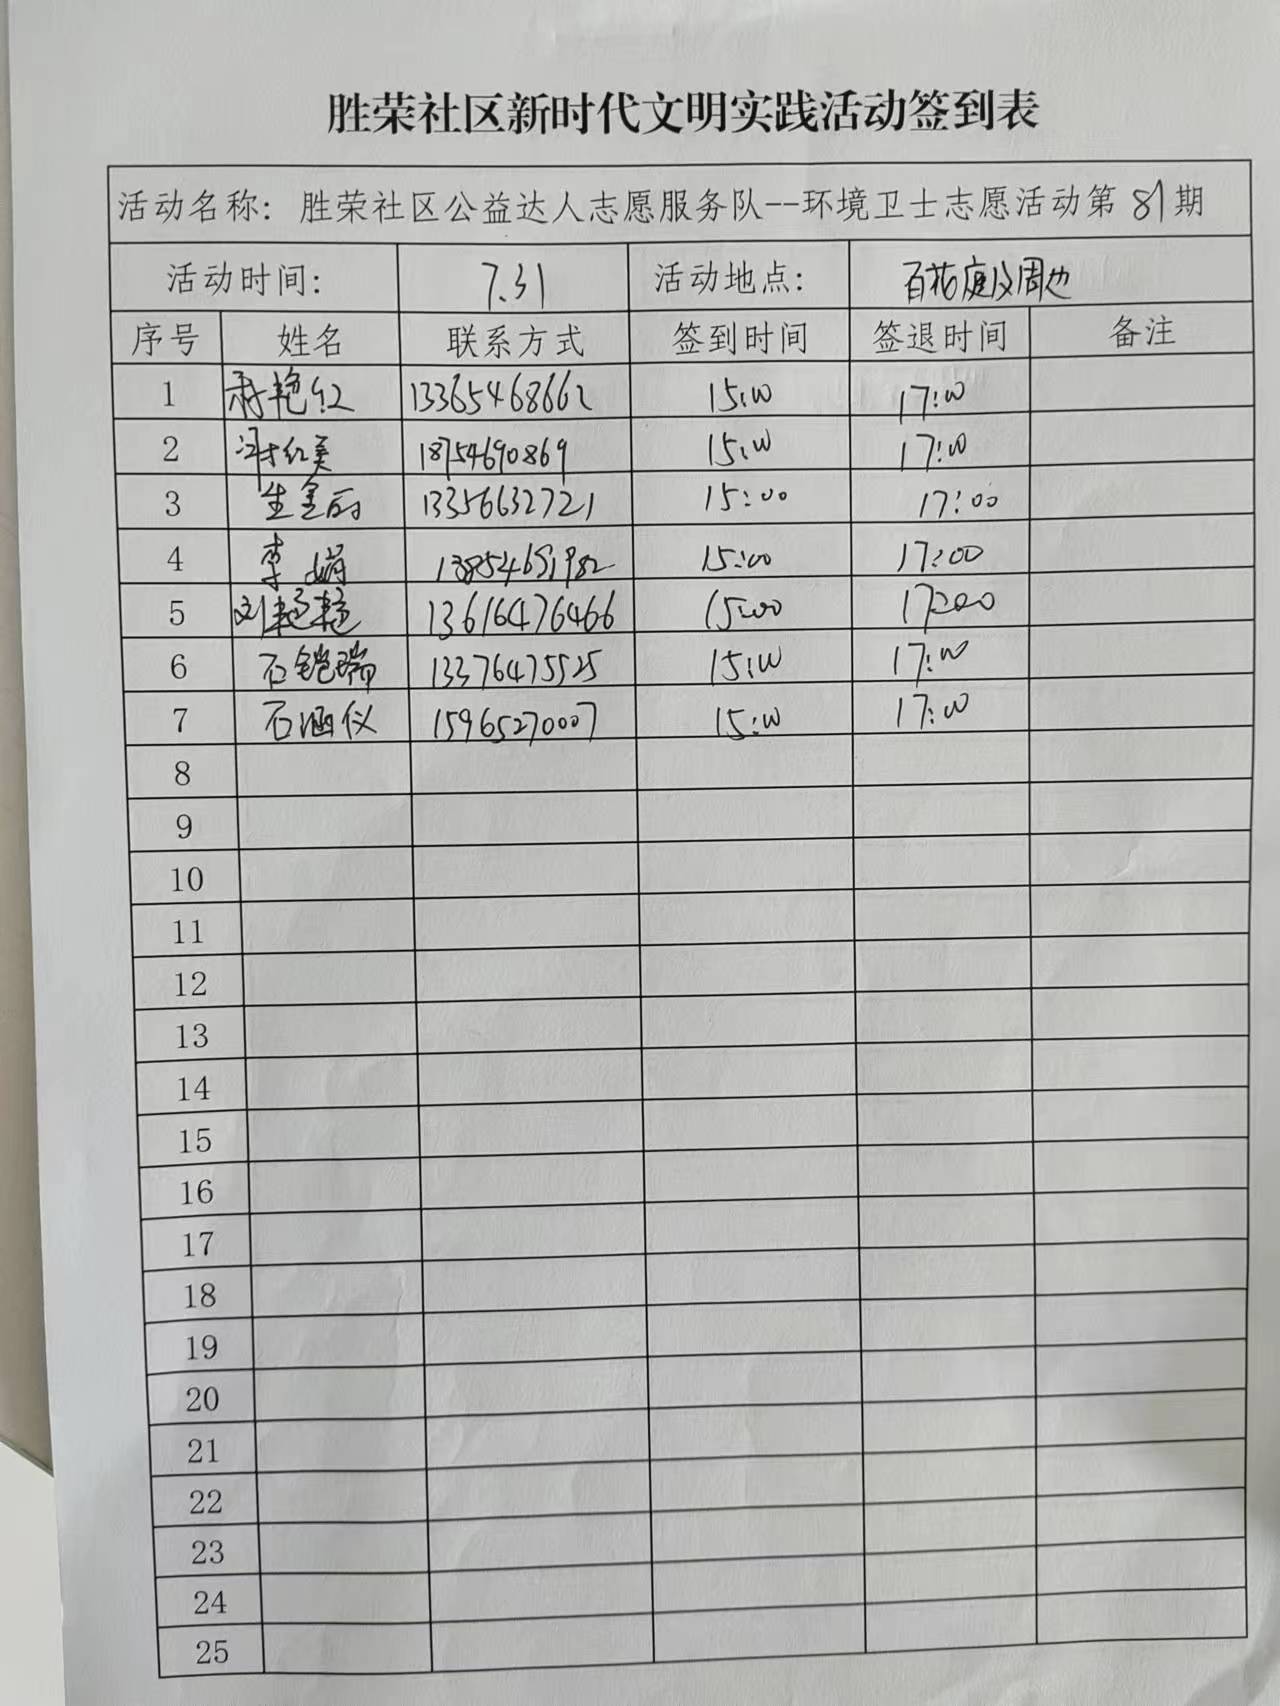 胜荣社区新时代文明实践活动签到表
活动名称：胜荣社区公益达人志愿服务队--环境卫士志愿活动第81期
活动时间： 7.31 活动地点： 百花庭及周边
序号 姓名 联系方式 签到时间 签退时间 备注
1 艳红 13365468662 15:00 17:00
2 红美 18754690869 15:00 17:00
3 生金丽 13356632721 15:00 17:00
4 李娟 15:00 17:00
5 刘艳艳 13616476466 15:00 17:00
6 石铠瑞 13376475525 15:00 17:00
7 石涵仪 15965270007 15:00 17:00
8
9
10
11
12
13
14
15
16
17
18
19
20
21
22
23
24
25